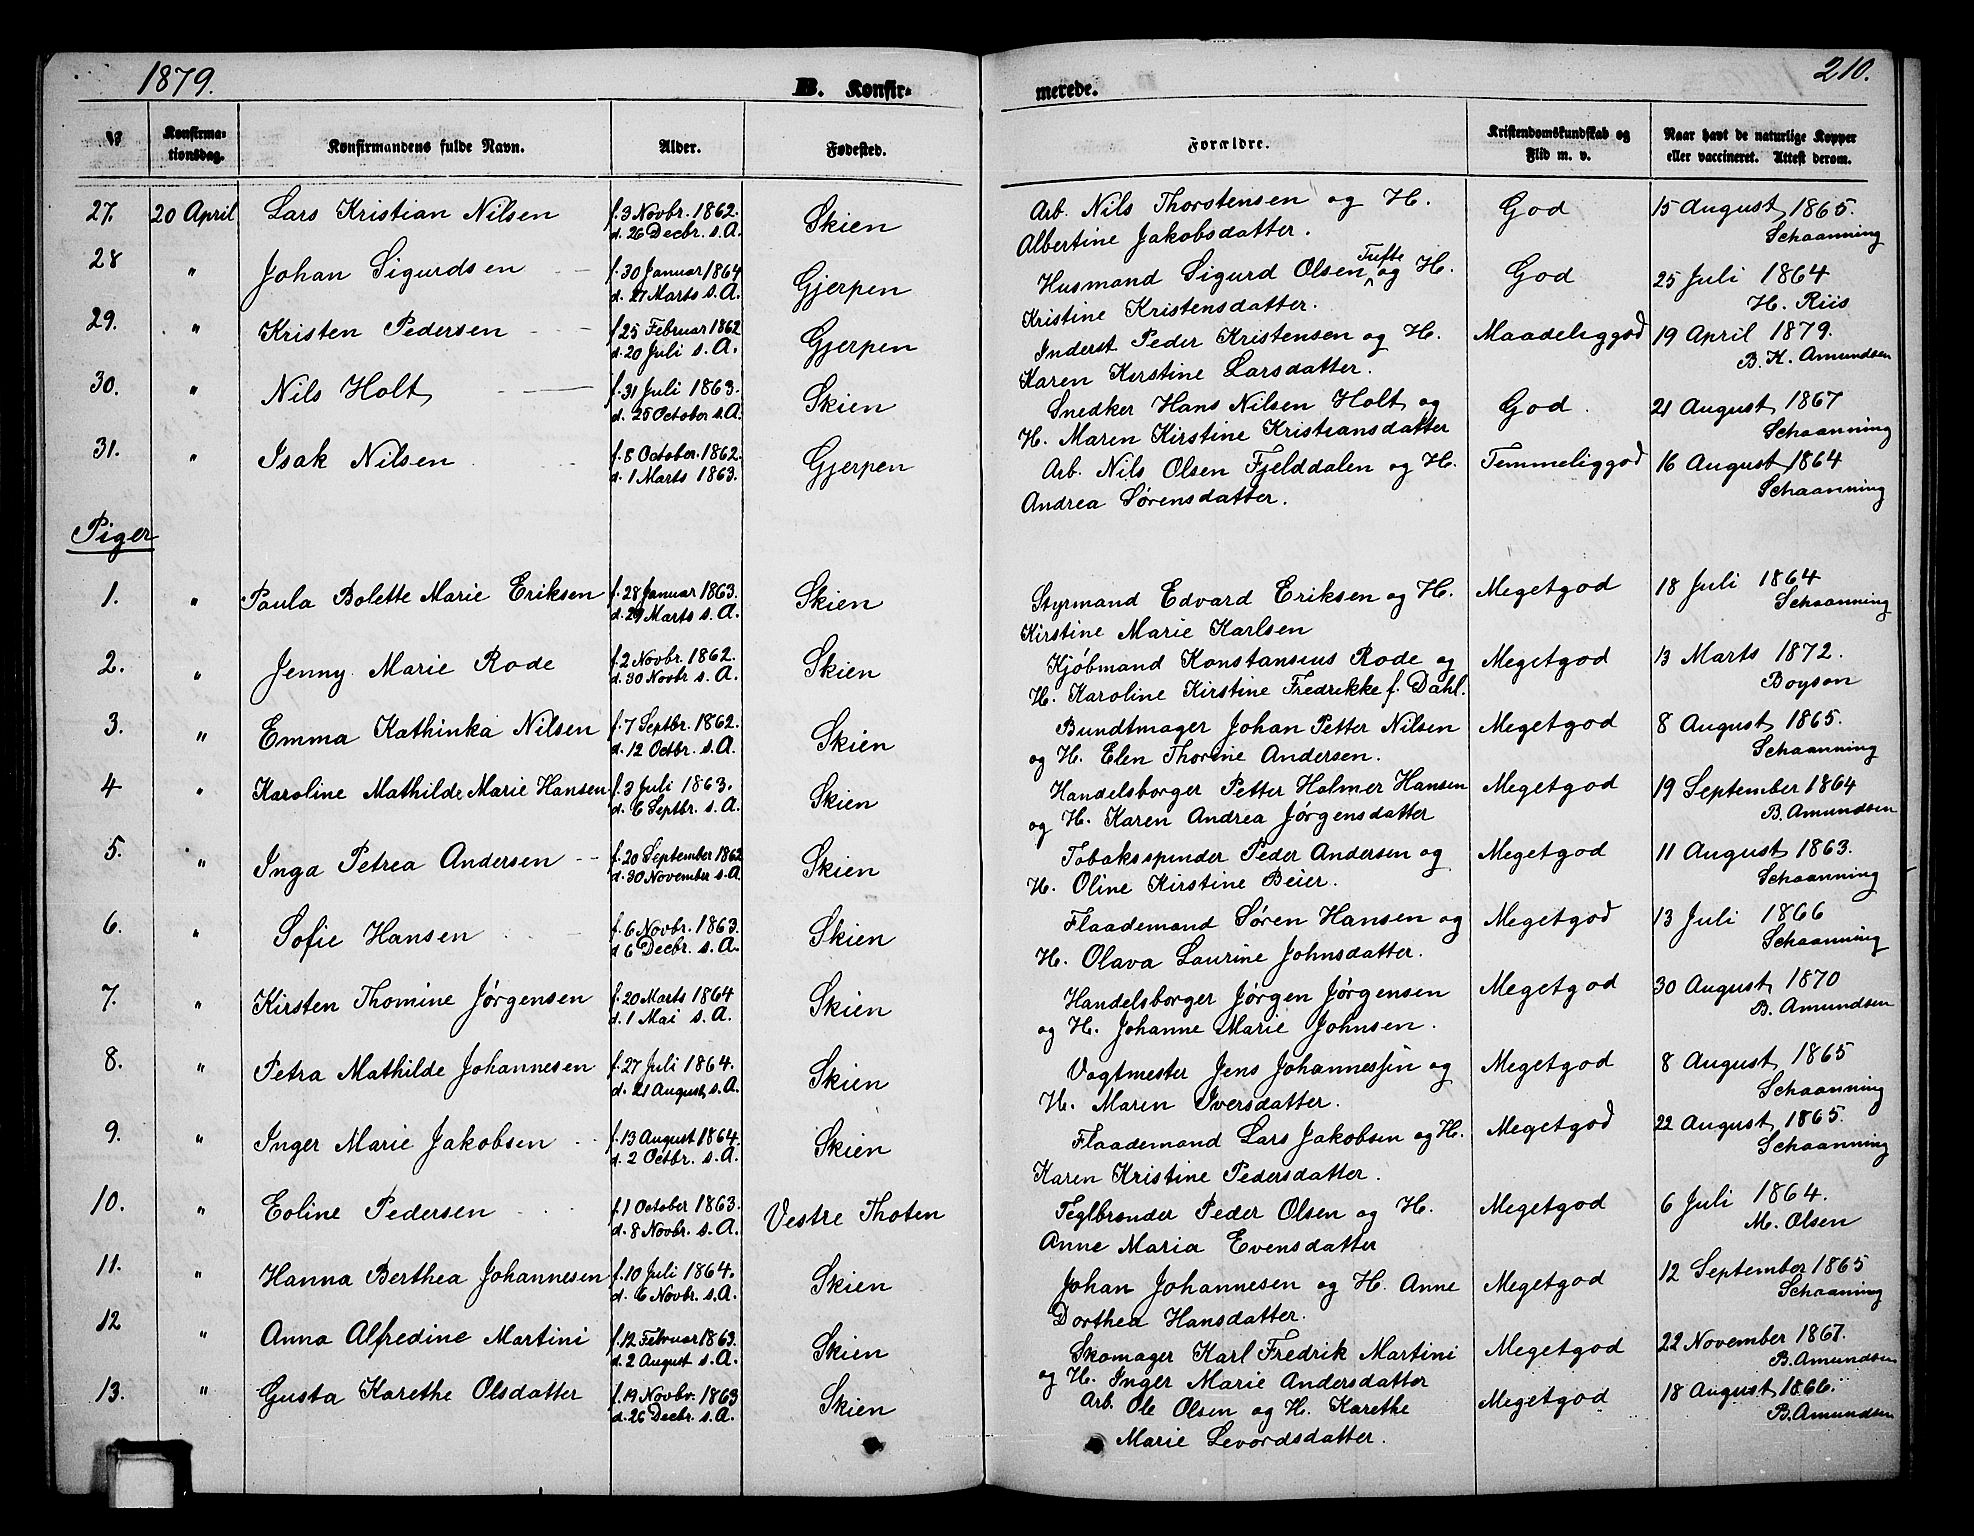 1879.
B. Konfir-
merede.
210.
№
Konfirma-
tionsdag.
Konfirmandens fulde Navn.
Alder.
Fødested.
Forældre.
Kristendomskundskab og
Flid m. v.
Naar havt de naturlige Kopper
eller vaccineret. Attest derom.
27. 20 April Lars Kristian Nilsen f. 3 Novbr. 1862. Skien Arb. Nils Thorstensen og H. God 15 August 1865.
d. 26 Decbr. s. A. Albertine Jakobsdatter. Schaanning
28 " Johan Sigurdsen f. 30 Januar 1864 Gjerpen Husmand Sigurd Olsen Tufte og H. God 25 Juli 1864
d. 27 Marts s. A. Kristine Kristensdatter. H. Riis
29. " Kristen Pedersen f. 25 Februar 1862 Gjerpen Inderst Peder Kristensen og H. Maadeliggod 19 April 1879.
d. 20 Juli s. A. Karen Kirstine Larsdatter. B. K. Amundsen
30. " Nils Holt f. 31 Juli 1863. Skien Snedker Hans Nilsen Holt og God. 21 August 1867
d. 25 October s. A. H. Maren Kirstine Kristiansdatter Schaanning
31. " Isak Nilsen f. 8 October 1862. Gjerpen Arb. Nils Olsen Fjelddalen og H. Temmeliggod 16 August 1864
d. 1 Marts 1863. Andrea Sørensdatter. Schaanning
Piger
1. " Paula Bolette Marie Eriksen f. 28 Januar 1863. Skien Styrmand Edvard Eriksen og H. Megetgod 18 Juli 1864
d. 29 Marts s. A. Kirstine Marie Karlsen Schaanning
2. " Jenny Marie Rode f. 2 Novbr. 1862. Skien Kjøbmand Konstansius Rode og Megetgod 13 Marts 1872.
d. 30 Novbr s. A. H. Karoline Kirstine Fredrikke f. Dahl. Boyson
3. " Emma Kathinka Nilsen f. 7 Septbr. 1862. Skien Bundtmager Johan Petter Nilsen Megetgod 8 August 1865.
d. 12 Octbr. s. A. og H. Elen Thorine Andersen. Schaanning
4 " Karoline Mathilde Marie Hansen f. 3 Juli 1863. Skien Handelsborger Petter Holmer Hansen Megetgod 19 September 1864
d. 6 Septbr. s. A. og H. Karen Andrea Jørgensdatter B. Amundsen
5. " Inga Petrea Andersen f. 20 September 1862 Skien Tobaksspinder Peder Andersen og Megetgod 11 August 1863.
d. 30 November s. A. H. Oline Kirstine Beier. Schaanning
6. " Sofie Hansen f. 6 Novbr. 1863. Skien Flaademand Søren Hansen og Megetgod 13 Juli 1866
d 6 Decbr. s. A. H. Olava Laurine Johnsdatter. Schaanning
7. " Kirsten Thomine Jørgensen f. 20 Marts 1864 Skien Handelsborger Jørgen Jørgensen Megetgod 30 August 1870
d. 1 Mai s. A. og H. Johanne Marie Johnsen. B. Amundsen
8. " Petra Mathilde Johannesen f. 27 Juli 1864. Skien Vagtmester Jens Johannessen og Megetgod 8 August 1865
d. 21 August s. A. H. Maren Iversdatter. Schaanning
9. " Inger Marie Jakobsen f. 13 August 1864. Skien Flaademand Lars Jakobsen og H. Megetgod 22 August 1865.
d. 2 Octbr. s. A. Karen Kristine Pedersdatter. Schaanning
10. " Eoline Pedersen f. 1 October 1863. Vestre Thoten Teglbrænder Peder Olsen og H. Megetgod 6 Juli 1864.
d. 8 Novbr. s. A. Anne Maria Evensdatter M. Olsen
11. " Hanna Berthea Johannesen f. 10 Juli 1864. Skien Johan Johannesen og H. Anne Megetgod 12 September 1865
d. 6 Novbr. s. A. Dorthea Hansdatter. Schaanning
12 " Anna Alfredine Martini f. 12 Februar 1863. Skien Skomager Karl Fredrik Martini Megetgod 22 November 1867.
d. 2 August s. A. og H. Inger Marie Andersdatter B. Amundsen
13. " Gusta Karethe Olsdatter f. 19 Novbr. 1863 Skien Arb. Ole Olsen og H. Karethe Megetgod 18 August 1866.
d. 26 Decbr. s. A. Marie Levordsdatter. B. Amundsen